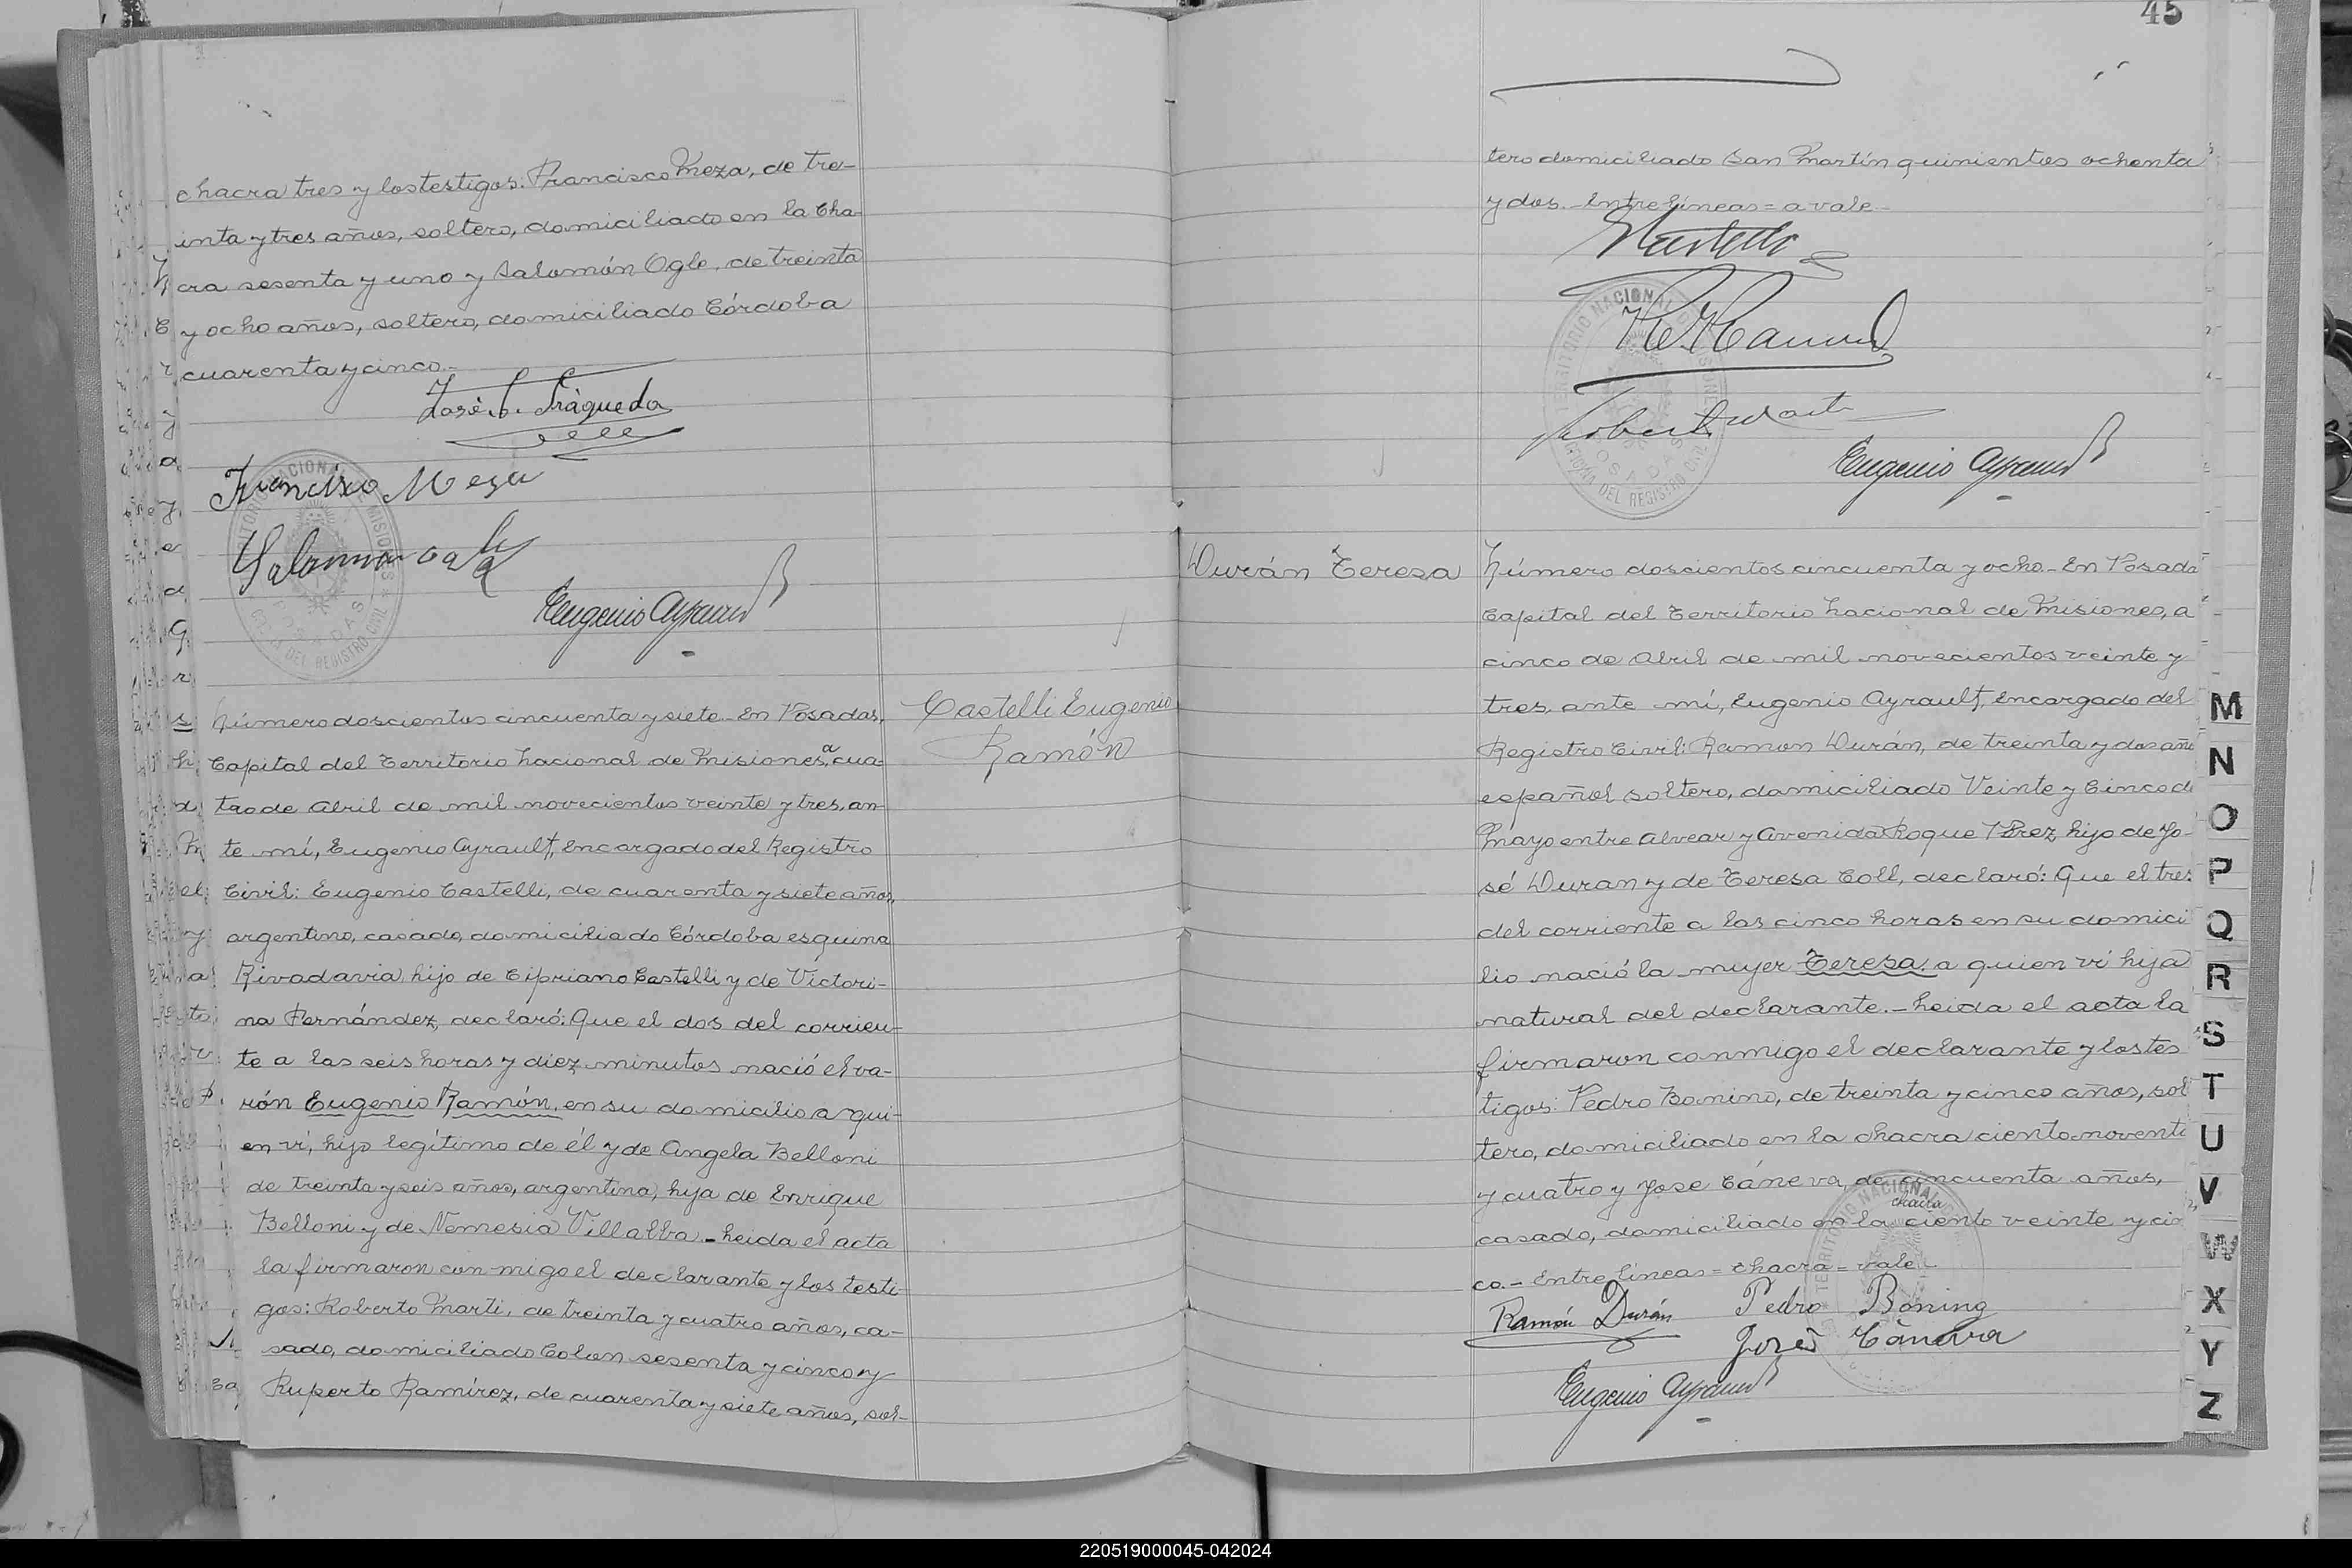 chacra tres y los testigos: Francisco Meza, de tre-
inta y tres años, soltero, domiciliado en la Cha-
cra sesenta y uno y Salomón Ogle, de treinta
y ocho años, soltero, domiciliado Córdoba
cuarenta y cinco.-
Francisco Meza
Eugenio Ayrault
Castelli Eugenio
Ramón
Número doscientos cincuenta y siete.- En Posadas,
Capital del Territorio Nacional de Misiones, a cua-
tro de Abril de mil novecientos veinte y tres, an-
te mí, Eugenio Ayrault, Encargado del Registro
Civil: Eugenio Castelli, de cuarenta y siete años,
argentino, casado, domiciliado Córdoba esquina
Rivadavia, hijo de Cipriano Castelli y de Victori-
na Fernández, declaró: Que el dos del corrien-
te a las seis horas y diez minutos nació el va-
rón Eugenio Ramón, en su domicilio a qui-
en ví, hijo legítimo de él y de Angela Belloni
de treinta y seis años, argentina, hija de Enrique
Belloni y de Nemesia Villalba.- Leida el acta
la firmaron conmigo el declarante y los testi-
gos: Roberto Marti, de treinta y cuatro años, ca-
sado, domiciliado Colon sesenta y cinco y
Ruperto Ramírez, de cuarenta y siete años, sol-
45
tero domiciliado San Martín quinientos ochenta
y dos.- Entre líneas = a vale.-
TERRITORIO NACIONAL DE MISIONES
POSADAS
OFICINA DEL REGISTRO CIVIL
Eugenio Ayrault
Durán Teresa
Número doscientos cincuenta y ocho.- En Posada
Capital del Territorio Nacional de Misiones, a
cinco de Abril de mil novecientos veinte y
tres, ante mí, Eugenio Ayrault, Encargado del
Registro Civil: Ramon Durán, de treinta y dos añ
español soltero, domiciliado Veinte y Cinco d
Mayo entre Alvear y Avenida Roque Pérez hijo de Jo-
sé Duran y de Teresa Coll, declaró: Que el tres
del corriente a las cinco horas en su domici
lio nació la mujer Teresa, a quien ví hija
natural del declarante.- Leida el acta la
firmaron conmigo el declarante y los tes
tigos: Pedro Bonino, de treinta y cinco años, sol
tero, domiciliado en la chacra ciento novent
y cuatro y Jose Cáneva, de cincuenta años,
casado, domiciliado en la chacra ciento veinte y cin
co.- Entre líneas = chacra = vale.-
Ramón Durán Pedro Bonino
José Cáneva
Eugenio Ayrault
M
N
O
P
Q
R
S
T
U
V
W
X
Y
Z
220519000045-042024